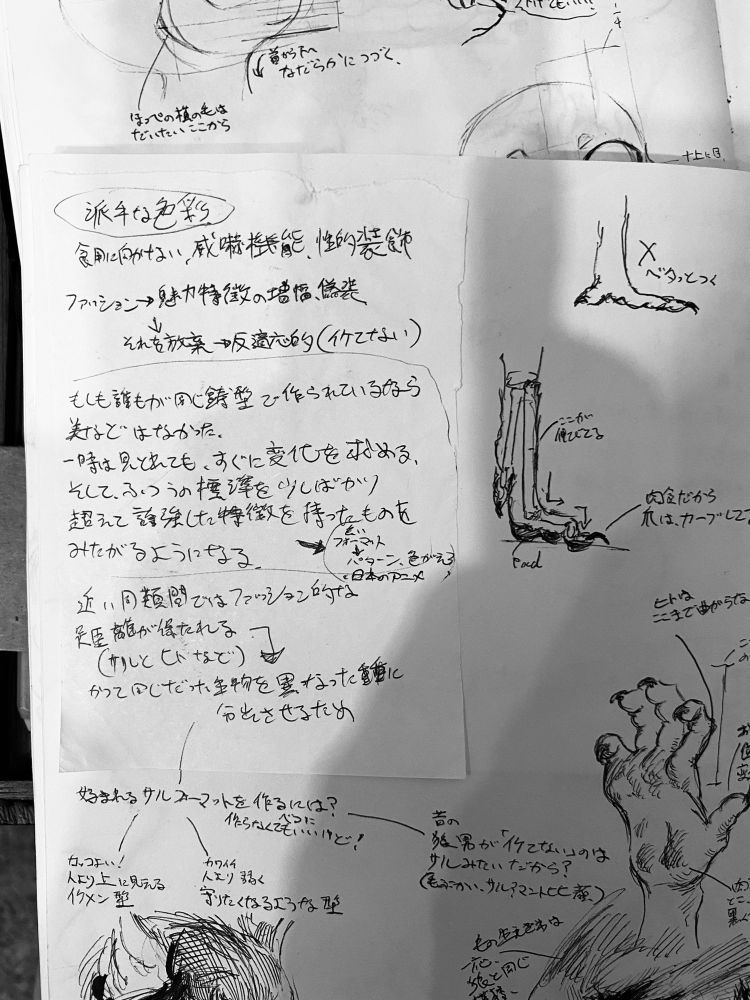 首から下へ
なだらかにつづく。
ほっぺの横の毛は
だいたいここから
派手な色彩
食用に向かない、威嚇機能、性的装飾
ファッション→魅力特徴の増幅、偽装
↓
それを放棄→反適応的(イケてない)
もしも誰もが同じ鋳型で作られているなら
美などはなかった。
一時は見とれても、すぐに変化を求める。
そして、ふつうの標準を少しばかり
超えて誇強した特徴を持ったものを
みたがるようになる。
フォーマット
↓
パターン、色がえ
日本のアニメ
近い同類間ではファッション的な
距離が保たれる
(サルとヒトなど)
かつて同じだった生物を異なった種に
分化させるため
好まれるサルフォーマットを作るには?
べつに
作らなくてもいいけど!
カッコよい!
人より上に見える
イケメン型
カワイイ
人より弱く
守りたくなるような型
昔の
男が「イケてない」のは
サルみたいだから?
✕
ベタッとつく
ここが
伸びてる
肉食だから
爪は、カーブして
Pad
ヒトは
ここまで曲がらな
娘と同じ